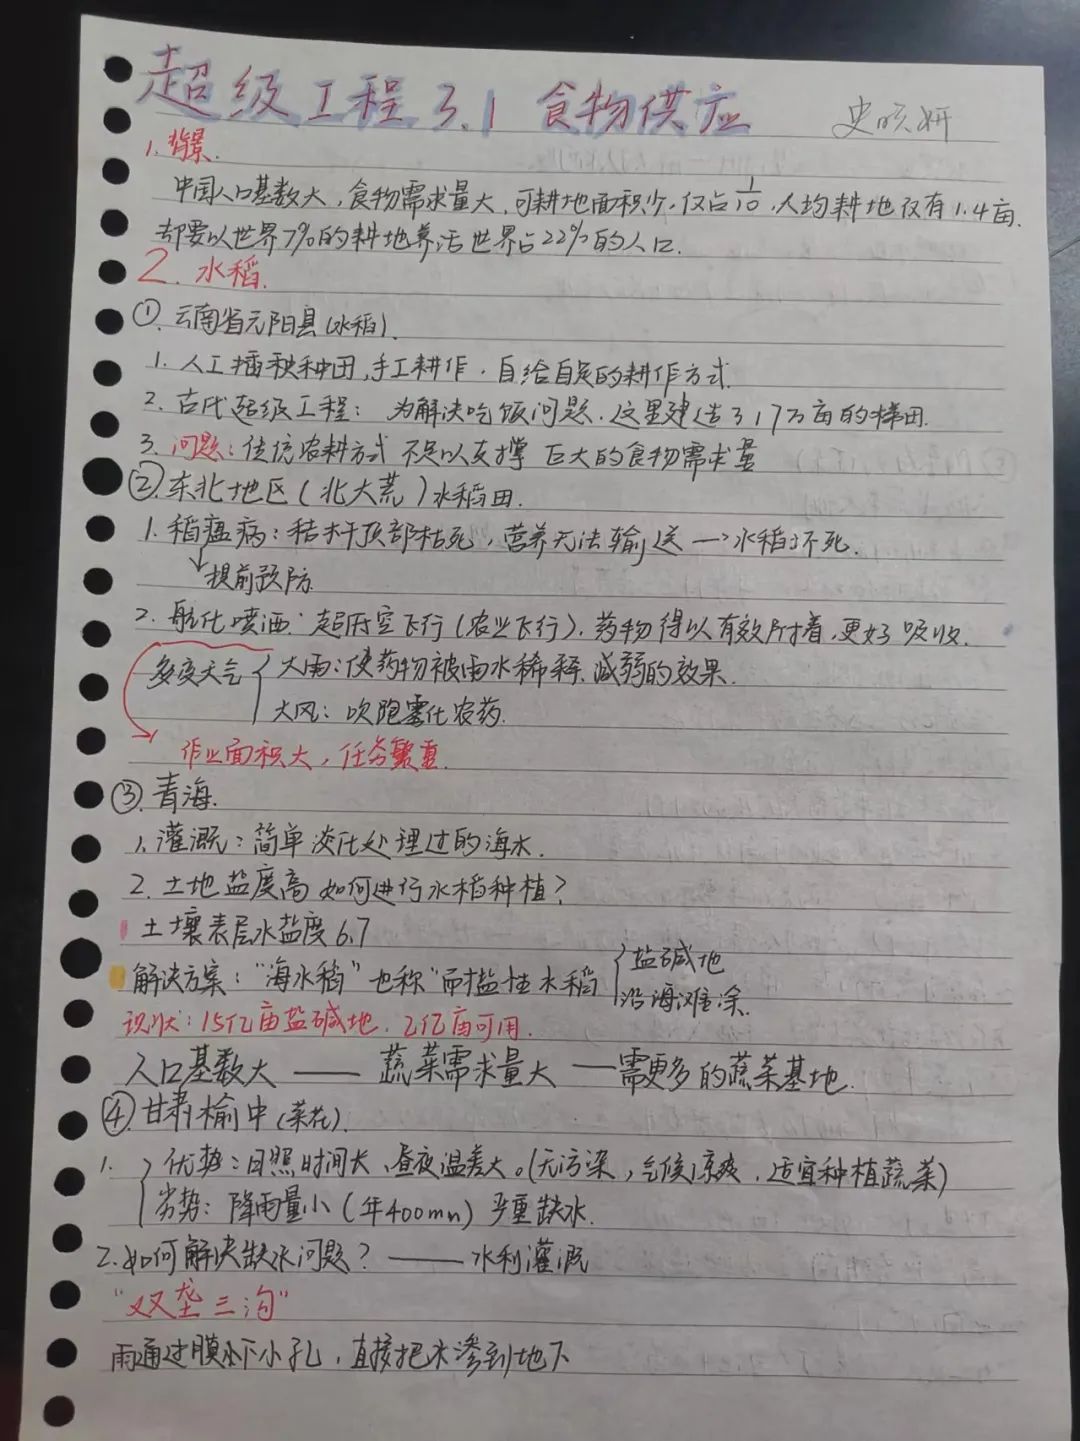 超级工程 3.1 食物供应 史
1. 背景.
中国人口基数大,食物需求量大,可耕地面积少,仅占1/10,人均耕地仅有1.4亩.
却要以世界7%的耕地养活世界占22%的人口.
2. 水稻.
①. 云南省元阳县(水稻).
1. 人工插秧种田,手工耕作. 自给自足的耕作方式.
2. 古代超级工程: 为解决吃饭问题. 这里建造了17万亩的梯田.
3. 问题: 传统农耕方式 不足以支撑 巨大的食物需求量
②东北地区(北大荒)水稻田.
1. 稻瘟病: 秸杆顶部枯死, 营养无法输送 → 水稻坏死.
↓提前预防
2. 航化喷洒: 超低空飞行(农业飞行). 药物得以有效附着,更好吸收.
多变天气 { 大雨: 使药物被雨水稀释. 减弱的效果.
大风: 吹跑雾化农药.
作业面积大, 任务繁重.
③. 青海.
1. 灌溉: 简单淡化处理过的海水.
2. 土地盐度高 如何进行水稻种植?
土壤表层水盐度6.7
解决方案: "海水稻"也称"耐盐性水稻 { 盐碱地
沿海滩涂.
现状: 15亿亩盐碱地. 2亿亩可用.
人口基数大 —— 蔬菜需求量大 — 需更多的蔬菜基地.
④甘肃榆中(菜花).
1. { 优势: 日照时间长, 昼夜温差大。(无污染, 气候凉爽. 适宜种植蔬菜)
劣势: 降雨量小(年400mm) 严重缺水.
2. 如何解决缺水问题? —— 水利灌溉
"双垄三沟"
雨通过膜下小孔, 直接把水渗到地下